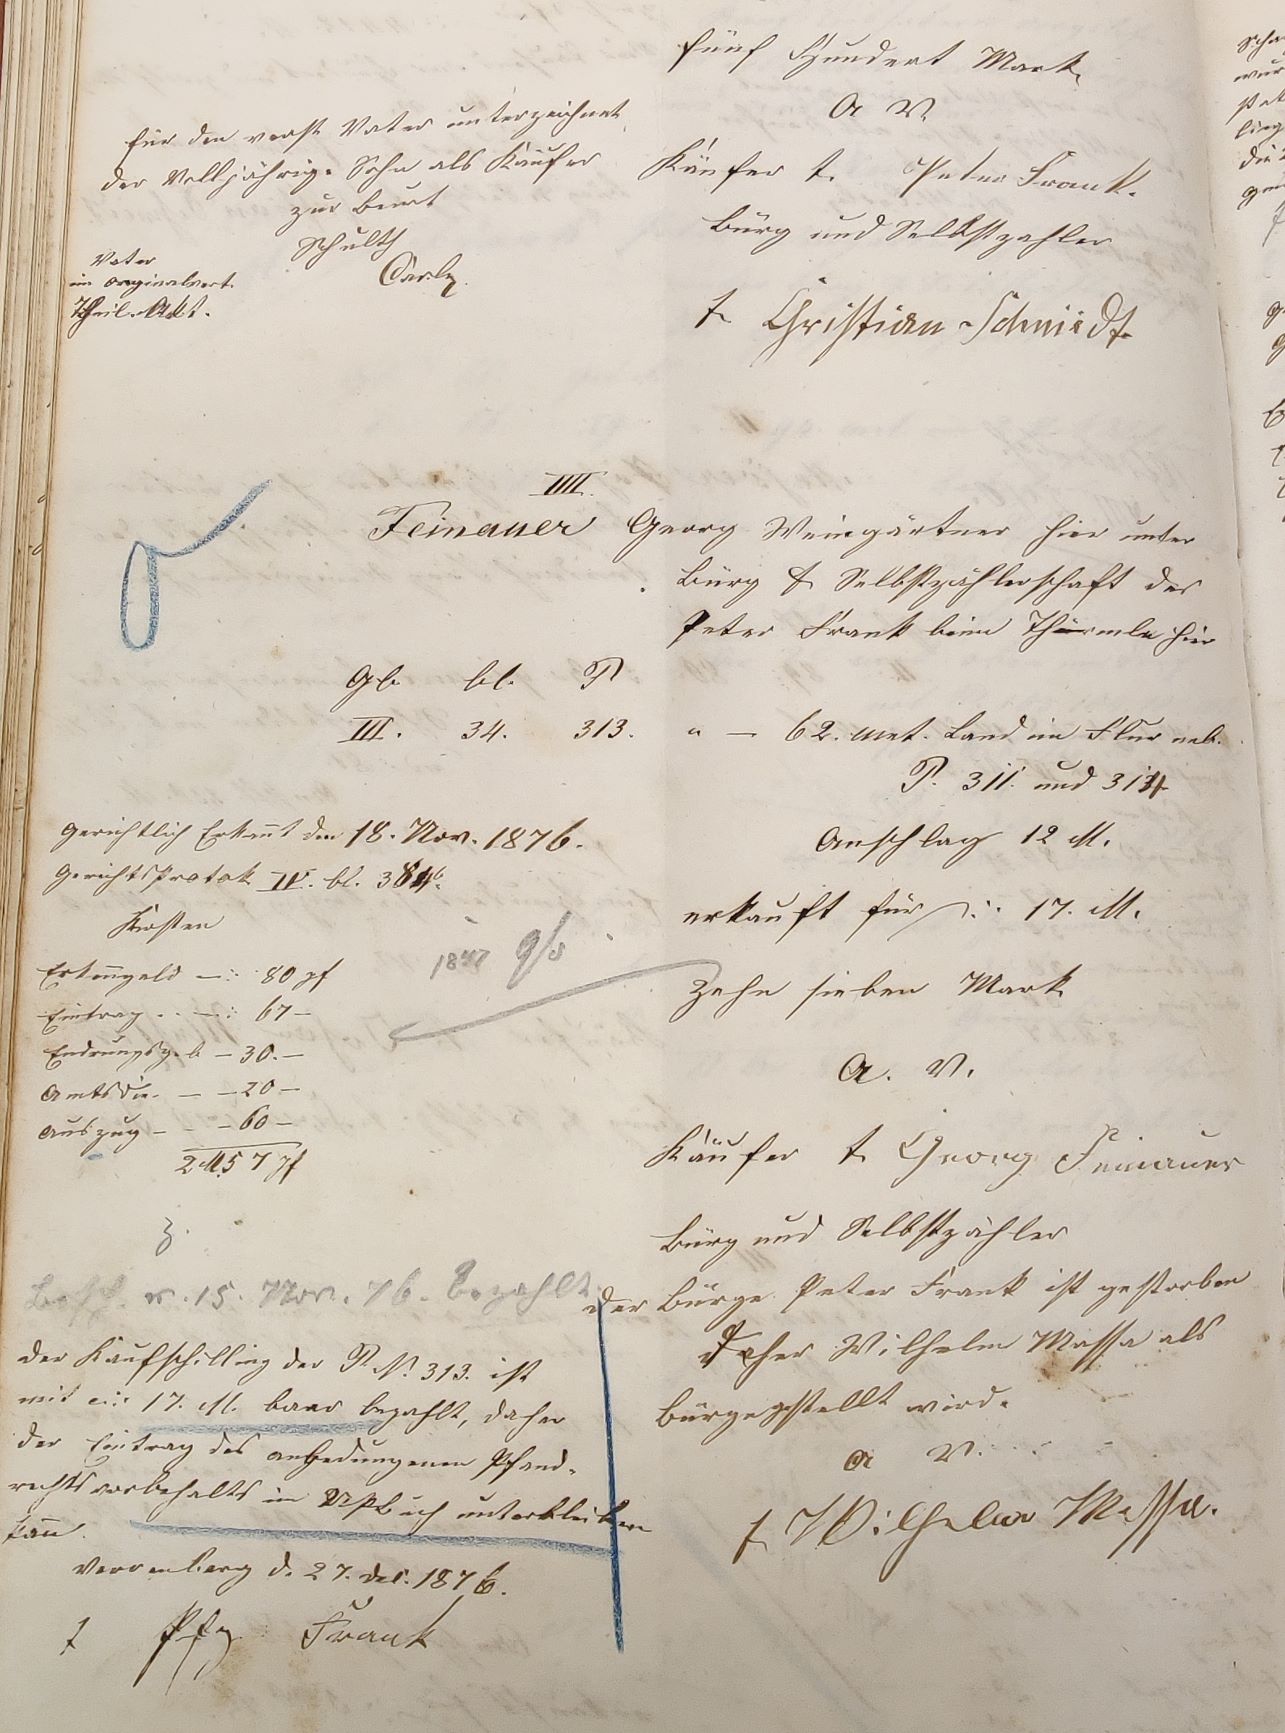 fünf Hundert Mark
A V.
Käufer t. Peter Frank.
Bürg und Selbstzahler
t. Christian Schmidt
für den verst. Vater unterzeichnet
der Volljährige Sohn als Käufer
zur Beurk
Schulth
Carle
Vater
im Originalvert.
Theil. Akt.
IIII.
Feinauer Georg Weingärtner hier unter
Bürg & Selbstzahlerschaft des
Peter Frank beim Thürmle hier
Gb. bl. P.
III. 34. 313. " — 62. Met. Land im Flur neb.
P. 311. und 314
Anschlag 12 M.
erkauft für 17. M.
Zehn sieben Mark
A. V.
Käufer t. Georg Feinauer
Bürg und Selbstzahler
der Bürge Peter Frank ist gestorben
daher Wilhelm Massa als
Bürge gestellt wird.
A V.
t. Wilhelm Massa.
Gerichtlich Erkannt den 18. Nov. 1876.
Gerichtsprotok. IV. bl. 384b.
Kosten
Erkenngeld —: 80 pf
Eintrag . . —: 67 —
— 30. —
Amtsdie. — — 20 —
Auszug — — 60 —
2 M 57 pf
18 77 9/3
z.
v. 15. Nov. 76. bezahlt
der Kaufschilling der P. N. 313. ist
mit 17. M. baar bezahlt, daher
der Eintrag des anbedungenen Pfand-
rechtsvorbehalts im UPfbuch unterbleiben
kann.
Verrenberg d. 27. Dez. 1876.
t Pfg Frank